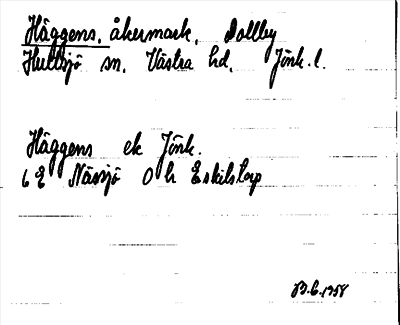 Häggens, åkermark, Dollby
Hultsjö sn. Västra hd. Jönk. l.
Häggens ek Jönk.
6 E Nässjö O h Eskilstorp
B.G. 1958